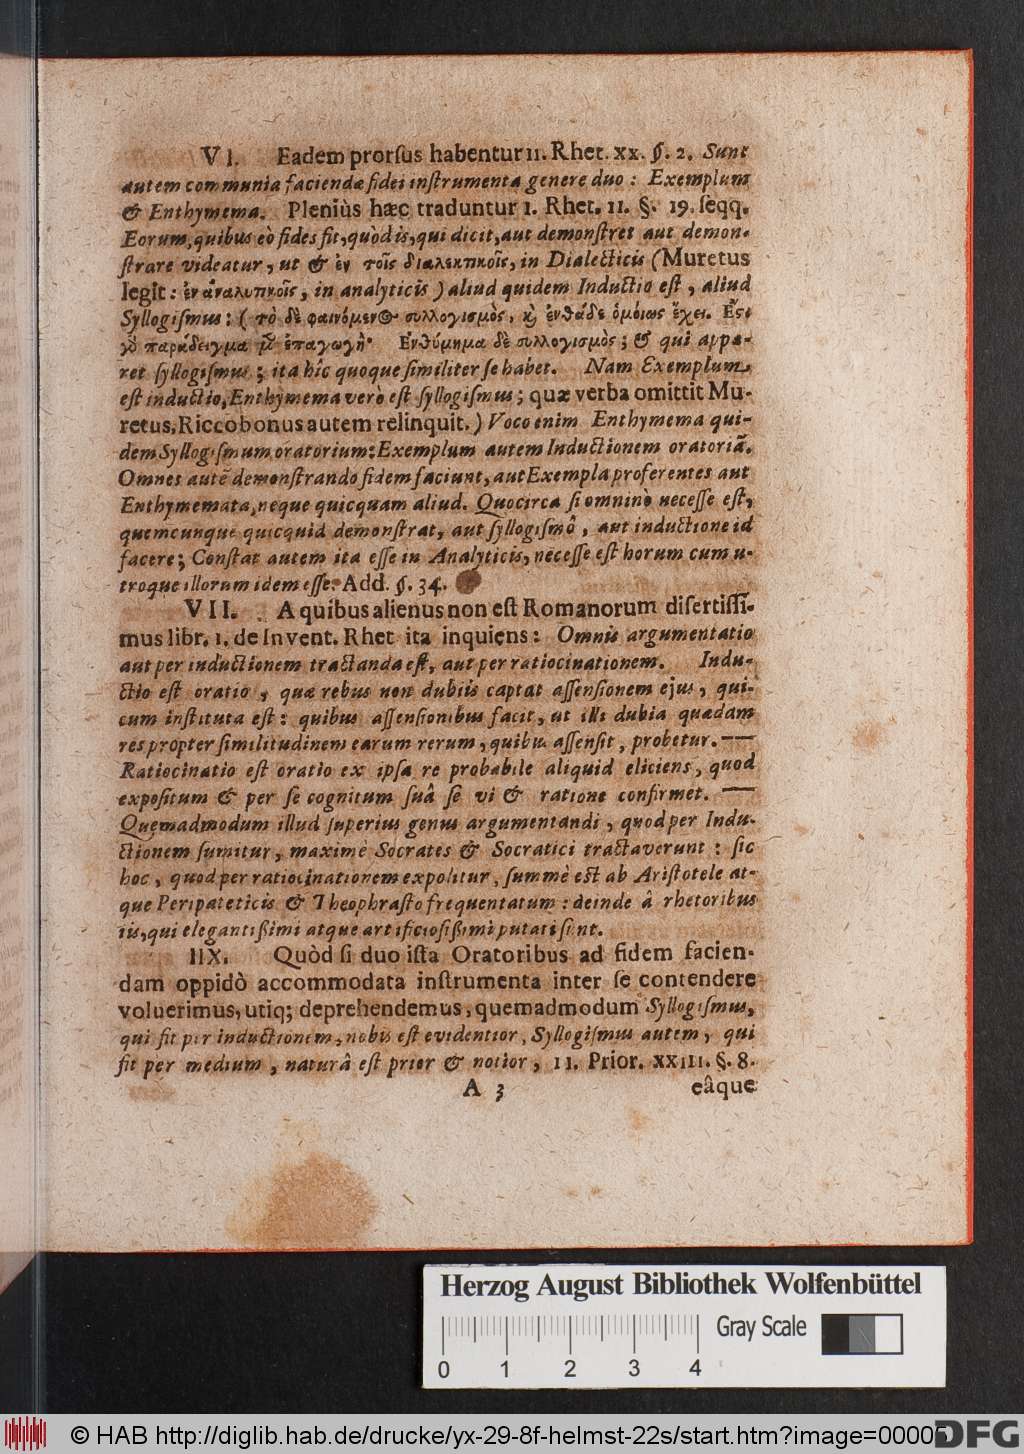 VI. Eadem prorſus habentur II. Rhet. XX. §. 2. Sunt
autem communia faciendæ fidei inſtrumenta genere duo: Exemplum
& Enthymema. Pleniùs hæc traduntur I. Rhet. II. §. 19. ſeqq.
Eorum, quibus eò fides fit, quòd is, qui dicit, aut demonſtret aut demon-
ſtrare videatur, ut & ἐν τοῖς διαλεκτικοῖς, in Dialecticis (Muretus
legit: ἐν ἀναλυτικοῖς, in analyticis) aliud quidem Inductio eſt, aliud
Syllogiſmus: (τὸ δὲ φαινόμενος συλλογισμὸς, καὶ ἐνθάδε ὁμοίως ἔχει. Ἔστι
γὸ παράδειγμα μ̃ ἐπαγωγὴ· Ενθύμημα δὲ συλλογισμὸς; & qui appa-
ret ſyllogiſmus; ita hîc quoque ſimiliter ſe habet. Nam Exemplum
eſt inductio, Enthymema verò eſt ſyllogiſmus; quæ verba omittit Mu-
retus, Riccobonus autem relinquit.) Voco enim Enthymema qui-
dem Syllogiſmum oratorium: Exemplum autem Inductionem oratoriã.
Omnes autẽ demonſtrando fidem faciunt, aut Exempla proferentes aut
Enthymemata, neque quicquam aliud. Quocirca ſi omninò neceſſe eſt,
quemcunque quicquid demonſtrat, aut ſyllogiſmô, aut inductione id
facere; Conſtat autem ita eſſe in Analyticis, neceſſe eſt horum cum u-
troque illorum idem eſſe. Add. §. 34.
VII. A quibus alienus non eſt Romanorum diſertiſſi-
mus libr. 1. de Invent. Rhet ita inquiens: Omnis argumentatio
aut per inductionem tractanda eſt, aut per ratiocinationem. Indu-
ctio eſt oratio, quæ rebus non dubiis captat aſſenſionem ejus, qui-
cum inſtituta eſt: quibus aſſenſionibus facit, ut illi dubia quædam
res propter ſimilitudinem earum rerum, quibus aſſenſit, probetur. —
Ratiocinatio eſt oratio ex ipſa re probabile aliquid eliciens, quod
expoſitum & per ſe cognitum ſuâ ſe vi & ratione confirmet. —
Quemadmodum illud ſuperius genus argumentandi, quod per Indu-
ctionem ſumitur, maximè Socrates & Socratici tractaverunt: ſic
hoc, quod per ratiocinationem expolitur, ſummè eſt ab Ariſtotele at-
que Peripateticis & Theophraſto frequentatum: deinde â rhetoribus
iis, qui elegantißimi atque artificioſißimi putati ſunt.
IIX. Quòd ſi duo iſta Oratoribus ad fidem facien-
dam oppidò accommodata inſtrumenta inter ſe contendere
voluerimus, utiq; deprehendemus, quemadmodum Syllogiſmus,
qui fit per inductionem, nobis eſt evidentior, Syllogiſmus autem, qui
fit per medium, naturâ eſt prior & notior, II. Prior. XXIII. §. 8.
A 3 eâque
Herzog August Bibliothek Wolfenbüttel
Gray Scale
0 1 2 3 4
© HAB http://diglib.hab.de/drucke/yx-29-8f-helmst-22s/start.htm?image=00005
DFG